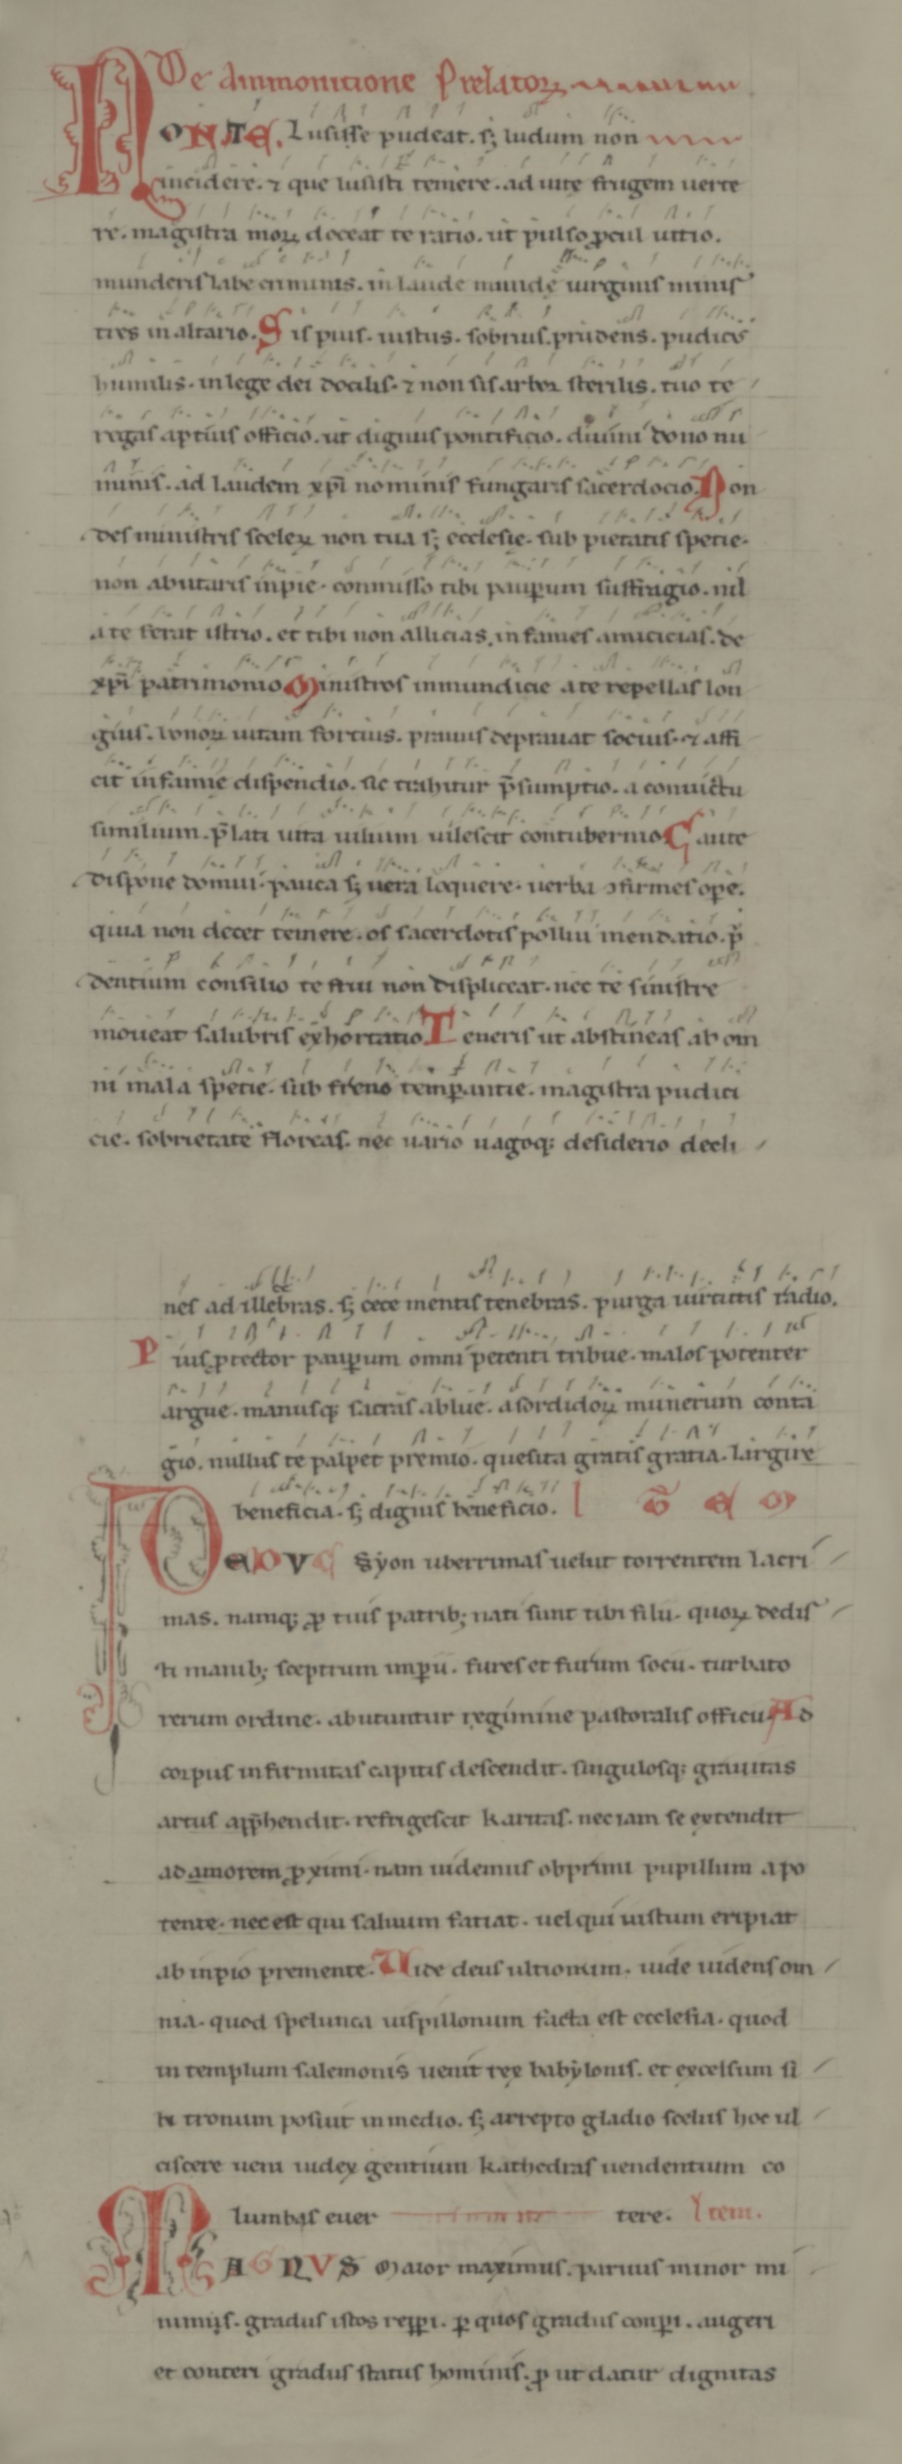 De ammonitione Prelatoꝝ
NONTE. Lusisse pudeat. sꝫ ludum non
incidere. ⁊ que lusisti temere. ad uite frugem uerte
re. magistra moꝝ doceat te ratio. ut pulso ꝓcul uitio.
munderis labe criminis. in laude munde uirginis minis
tres in altario. Sis pius. iustus. sobrius. prudens. pudicus
humilis. in lege dei docilis. ⁊ non sis arbor sterilis. tuo te
regas aptius officio. ut dignus pontificio. diuini dono nu
minis. ad laudem xp̄i nominis fungaris sacerdocio. Non
des ministris sceleꝝ non tua sꝫ ecclesie. sub pietatis specie.
non abutaris inpie. commisso tibi pauꝑum suffragio. nil
a te ferat istrio. et tibi non allicias. infames amicicias. de
xp̄i patrimonio. Ministros inmundicie a te repellas lon
gius. bonoꝝ uitam fortius. prauus deprauat socius. ⁊ affi
cit infamie dispendio. sic trahitur p̄sumptio. a conuictu
similium. p̄lati uita uilium uilescit contubernio. Caute
dispone domui. pauca sꝫ uera loquere. uerba ꝯfirmes ope.
quia non decet temere. os sacerdotis pollui mendatio. p̄
dentium consilio te frui non displiceat. nec te sinistre
moueat salubris exhortatio. Teneris ut abstineas ab om
ni mala specie. sub freno temꝑantie. magistra pudici
cie. sobrietate floreas. nec uario uagoqꝫ desiderio decli
nes ad illebras. sꝫ cece mentis tenebras. purga uirtutis radio.
Pius ꝓtector pauꝑum omni petenti tribue. malos potenter
argue. manusqꝫ sacras ablue. a sordidoꝝ munerum conta
gio. nullus te palpet premio. quesita gratis gratia. largire
beneficia. sꝫ dignis beneficio.
DEDUC Syon uberrimas uelut torrentem lacri
mas. namqꝫ ꝓ tuis patribꝫ nati sunt tibi filii. quoꝝ dedis
ti manibꝫ sceptrum imꝑii. fures et furum socii. turbato
rerum ordine. abutuntur regimine pastoralis officii. Ad
corpus infirmitas capitis descendit. singulosqꝫ grauitas
artus app̄hendit. refrigescit karitas. nec iam se extendit
ad amorem ꝓximi. nam uidemus obprimi pupillum a po
tente. nec est qui saluum fatiat. uel qui iustum eripiat
ab inpio premente. Uide deus ultionum. uide uidens om
nia. quod spelunca uispillonum facta est ecclesia. quod
in templum salemonis uenit rex babylonis. et excelsum si
bi tronum posuit in medio. sꝫ arrepto gladio scelus hoc ul
ciscere ueni iudex gentium kathedras uendentium co
lumbas euertere. Item.
MAGNVS Maior maximus. paruus minor mi
nimus. gradus istos repp̄i. ꝑ quos gradus conꝑi. augeri
et conteri gradus status hominis. ꝓ ut datur dignitas